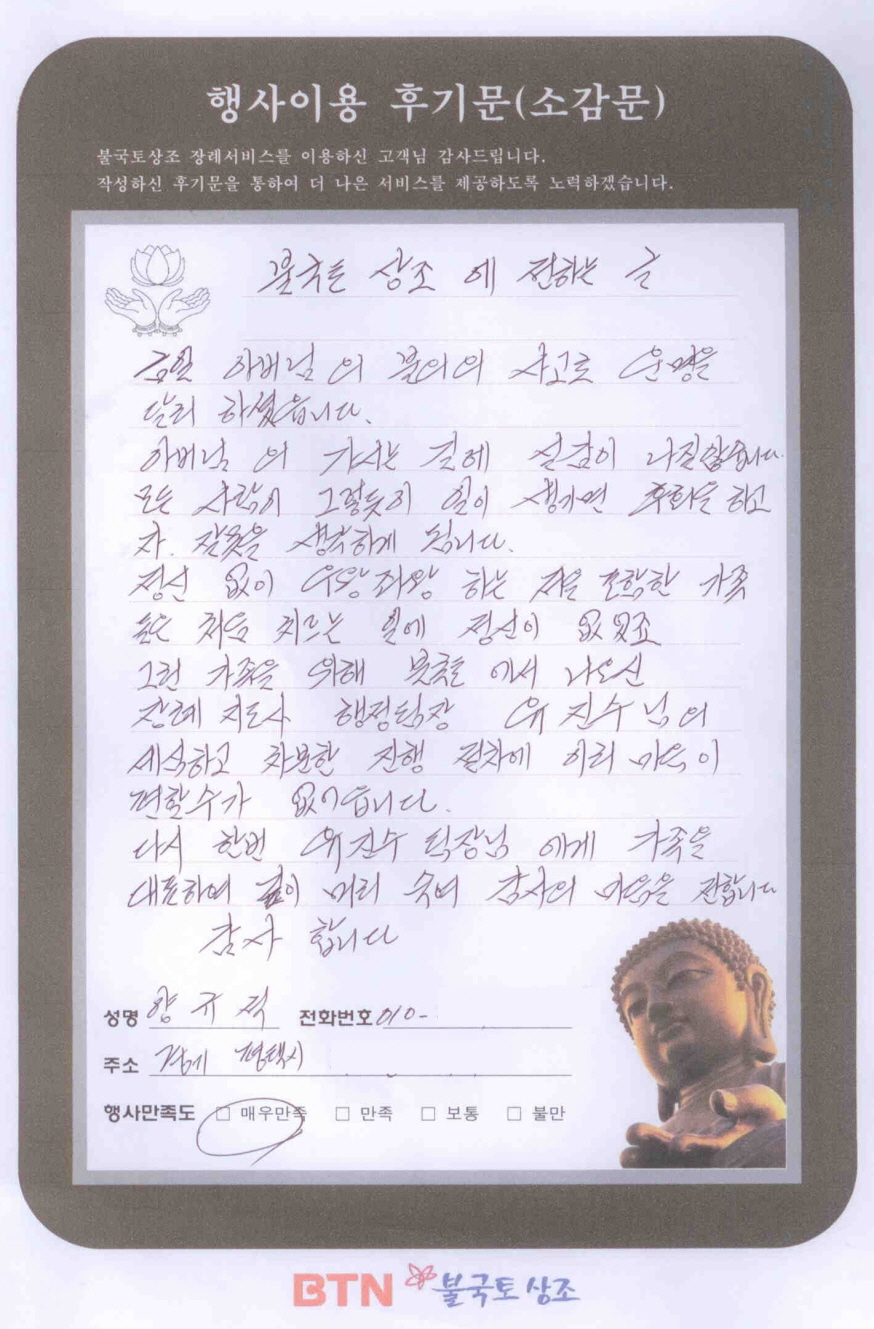 행사이용 후기문(소감문)
불국토상조 장례서비스를 이용하신 고객님 감사드립니다.
작성하신 후기문을 통하여 더 나은 서비스를 제공하도록 노력하겠습니다.
불국토 상조 에 전하는 글
금일 아버님 의 불의의 사고로 운명을
달리 하셨습니다.
아버님 의 가시는 길에 실감이 나질않습니다.
모든 사람이 그렇듯이 일이 생기면 후회를 하고
자. 잘못을 생각하게 됩니다.
정신 없이 우왕좌왕 하는 저를 포함한 가족
들은 처음 치르는 일에 정신이 없었죠
그런 가족을 위해 불국토 에서 나오신
장례 지도사 행정팀장 유진수 님의
세식하고 차분한 진행 절차에 이리 마음이
편할수가 없어습니다.
다시 한번 유진수 팀장님 에게 가족을
대표하여 깊이 머리 숙여 감사의 마음을 전합니다
감사 합니다
성명 양규직 전화번호 010-
주소 경기 평택시
행사만족도 □ 매우만족 □ 만족 □ 보통 □ 불만
BTN 불국토상조